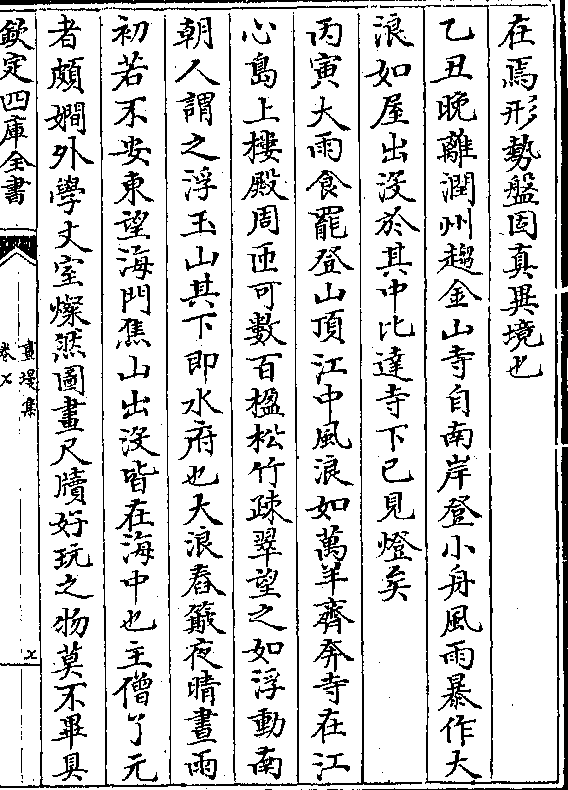 在焉形勢盤固真異境也
乙丑晚離潤州趨金山寺自南岸登小舟風雨暴作大
浪如屋出没於其中比達寺下已見燈矣
丙寅大雨食罷登山頂江中風浪如萬羊齊奔寺在江
心島上樓殿周匝可數百楹松竹疎翠望之如浮動南
朝人謂之浮玉山其下即水府也大浪舂簸夜晴晝雨
初若不安東望海門焦山出没皆在海中也主僧了元
者頗嫺外學丈室燦然圖畫尺牘好玩之物莫不畢具
欽定四庫全書
畫墁集
卷七
七